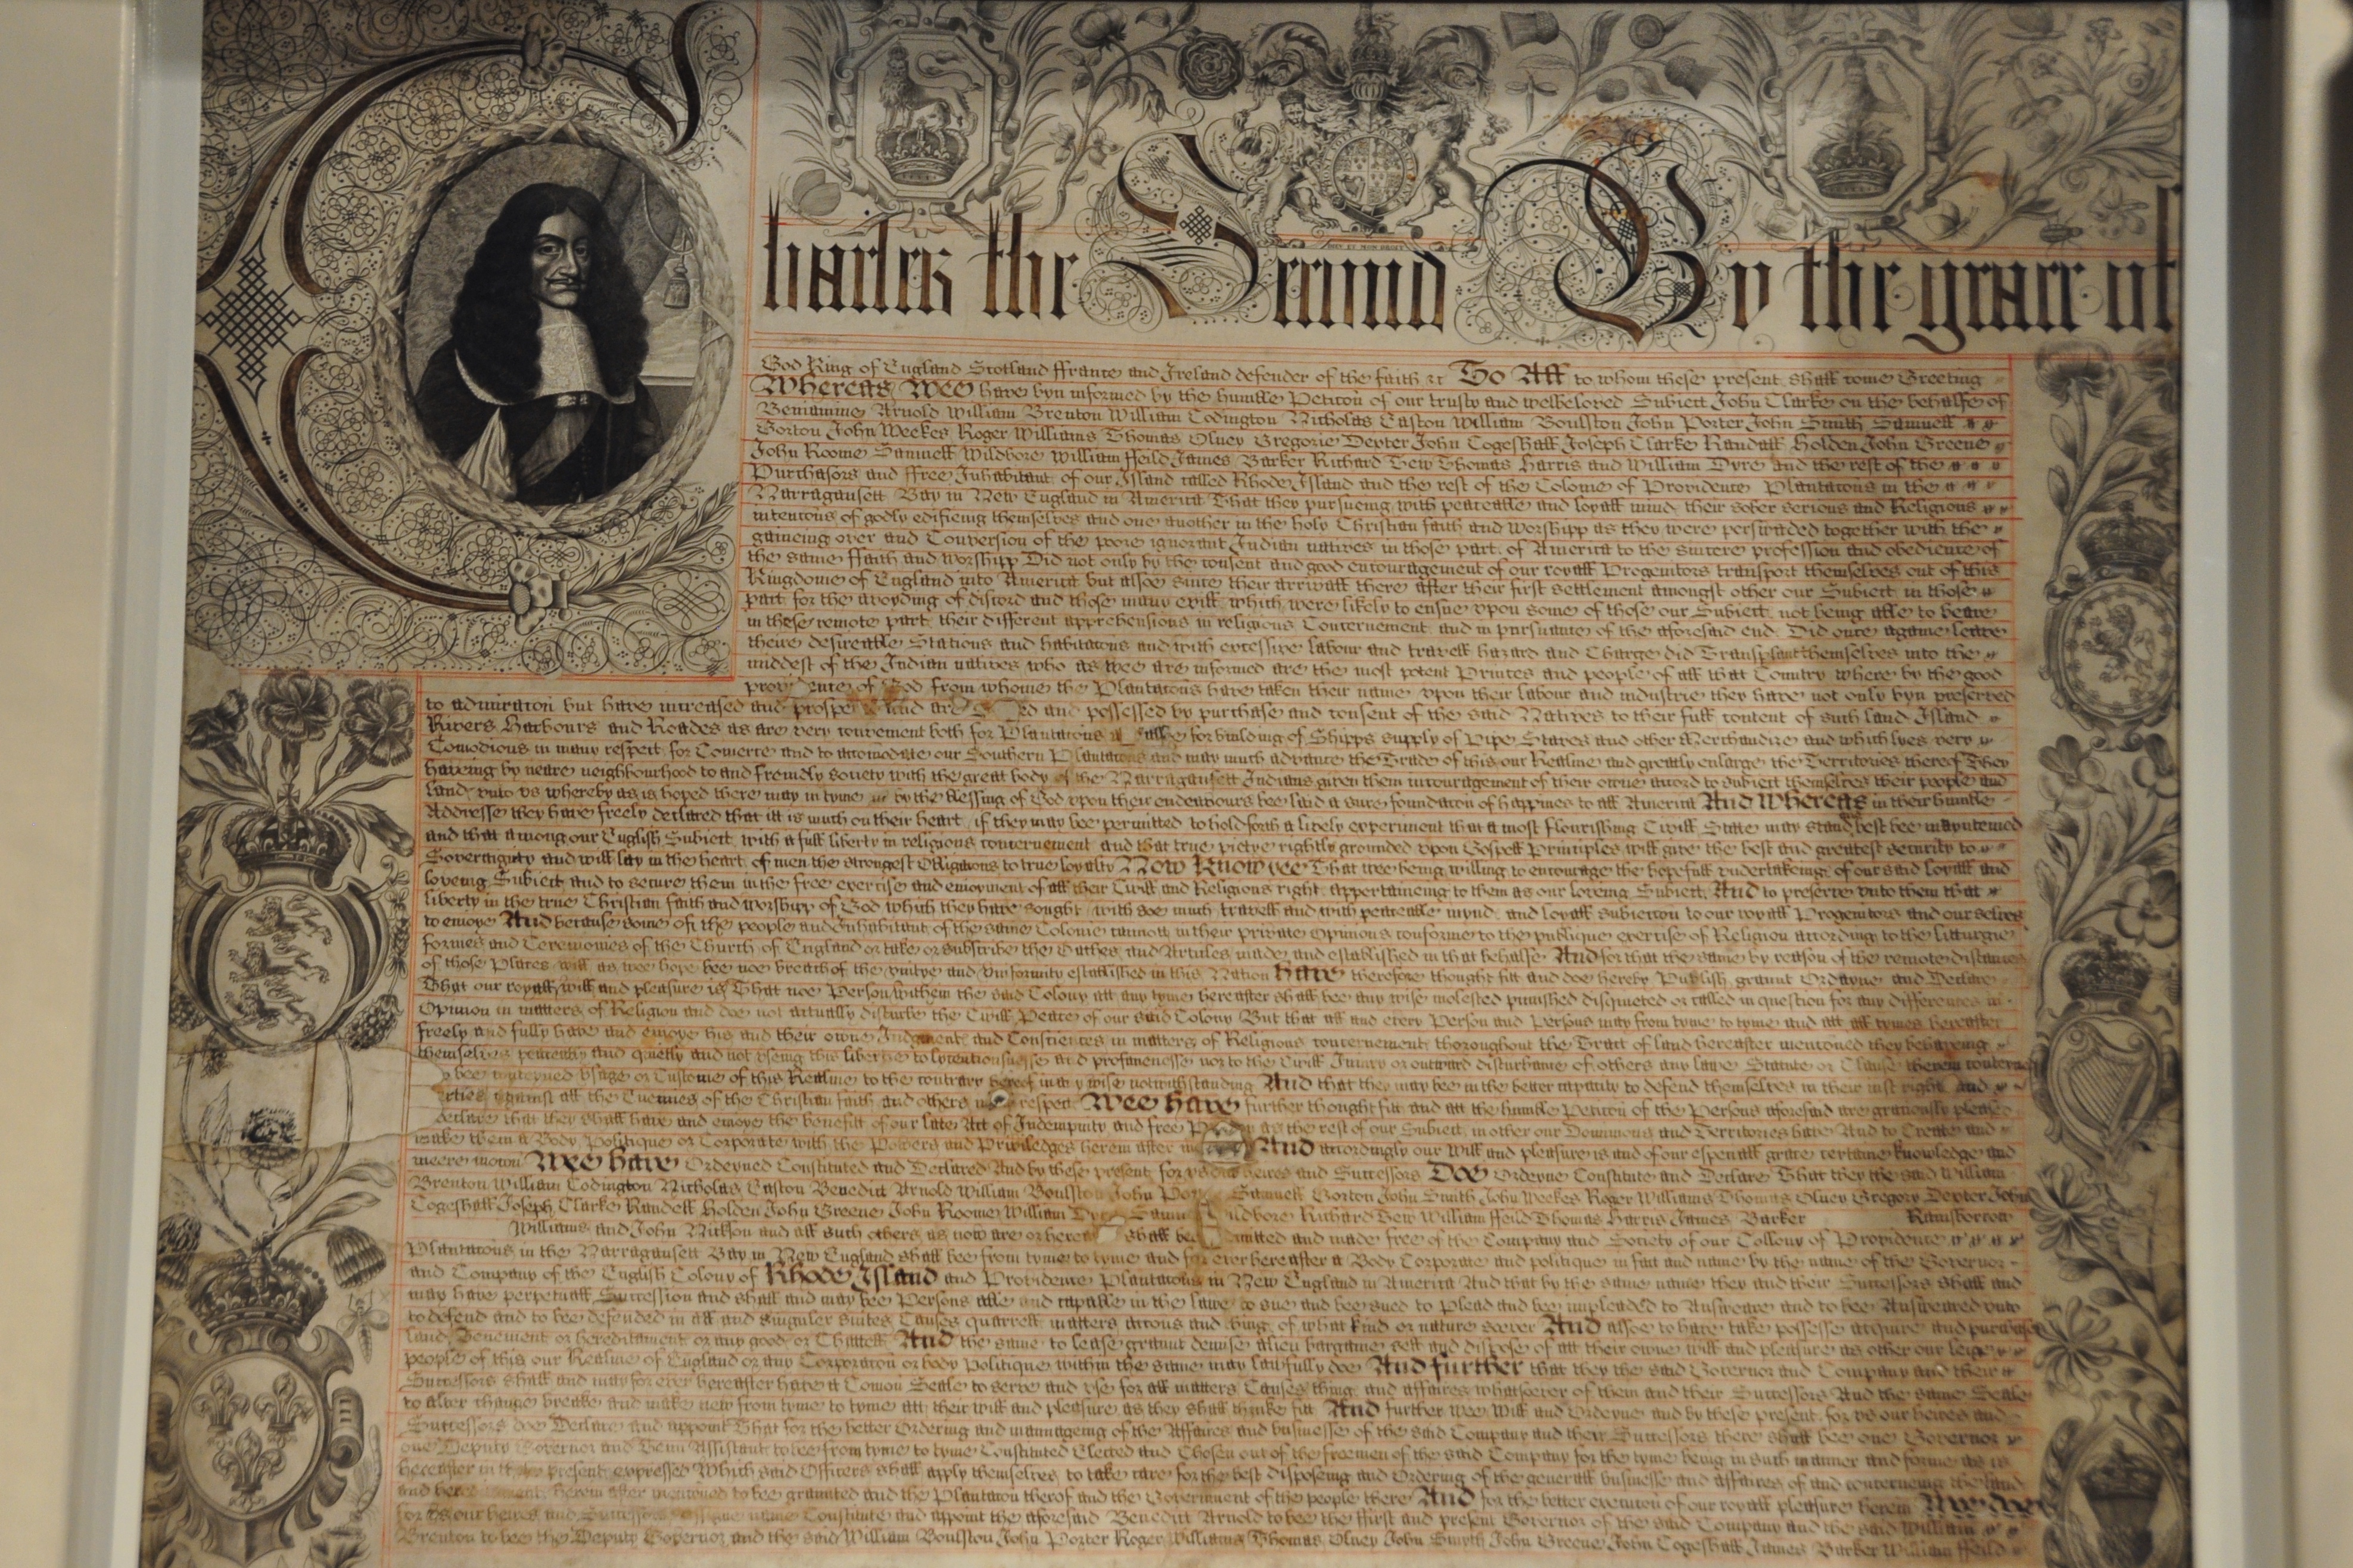 Charles the Second By the grace of
God King of England Scotland ffrance and Ireland defender of the faith &c To All to whom these present shall come Greeting
Whereas Wee have byn informed by the humble Peticon of our trusty and welbeloved Subiect John Clarke on the behalfe of
Beniamine Arnold William Brenton William Codington Nicholas Easton William Boulston John Porter John Smith Samuell
Gorton John Weekes Roger Williams Thomas Olney Gregorie Dexter John Cogeshall Joseph Clarke Randall Holden John Greene
John Roome Samuell Wildbore William ffeild James Barker Richard Tew Thomas Harris and William Dyre and the rest of the
Purchasors and ffree Inhabitant of our Island called Rhode Island and the rest of the Colonie of Providence Plantacons in the
Narragansett Bay in New England in America That they pursueing with peaceable and loyall mind their sober serious and Religious
intencons of godly edifieing themselves and one another in the holy Christian faith and worshipp as they were perswaded together with the
gaineing over and Conversion of the poore ignorant Indian natives in those part of America to the sincere profession and obedience of
the same ffaith and worshipp Did not only by the consent and good encouragement of our royall Progenitors transport themselves out of this
Kingdome of England into America but alsoe since their arrivall there after their first settlement amongst other our Subiect in those
part for the avoyding of discord and those many evill which were likely to ensue vpon some of those our Subiect not being able to beare
in these remote part their different apprehensions in religious Concernement and in pursuance of the aforesaid end Did once againe leave
theire desireable Stations and habitacons and with excessive labour and travell hazard and Charge did Transplant themselves into the
middest of the Indian natives who as wee are informed are the most potent Princes and people of all that Country where by the good
providence of God from whome the Plantacons have taken their name vpon their labour and industrie they have not only byn preserved
to admiracon but have increased and prospe and are ed and possessed by purchase and consent of the said Natives to their full content of such land Island
Rivers Harbours and Roades as are very convenient both for Plantacons and alsoe for building of Shipps supply of Pipe Staves and other Merchandize and which lyes very
Comodious in many respect for Comerce and to accomodate our Southern Plantacons and may much advance the Trade of this our Realme and greatly enlarge the Territories thereof They
haveing by neare neighbourhood to and freindly society with the great body of the Narragansett Indians given them incouragement of their owne accord to subiect themselves their people and
land vnto vs whereby as is hoped there may in tyme by the blessing of God vpon their endeavours bee laid a sure foundacon of happines to all America And Whereas in their humble
Addresse they have freely declared that itt is much on their heart if they may bee permitted to hold forth a lively experiment that a most flourishing Civill State may stand and best bee maynteined
and that among our English Subiect with a full liberty in religious concernement and that true pietye rightly grounded vpon Gospell Principles will give the best and greatest security to
Soveraignty and will lay in the heart of men the strongest Obligations to true loyalty Now Know yee That wee being willing to encourage the hopefull vndertakeing of our said loyall and
loveing Subiect and to secure them in the free exercise and enioyment of all their Civill and Religious right appertaineing to them as our loveing Subiect And to preserve vnto them that
liberty in the true Christian faith and worshipp of God which they have sought with soe much travell and with peaceable mynd and loyall subieccon to our royall Progenitors and our selves
to enioye And because some of the people and inhabitant of the same Colonie cannot in their private Opinions conforme to the publique exercise of Religion according to the litturgie
formes and Ceremonies of the Church of England or take or subscribe the Oathes and Articles made and established in that behalfe And for that the same by reason of the remote distances
of those Places will as wee hope bee noe breach of the vnitye and vniformity established in this Nation Have therefore thought fitt and doe hereby Publish graunt Ordayne and Declare
That our royall will and pleasure is That noe Person within the said Colony att any tyme hereafter shall bee any wise molested punished disquieted or called in question for any differences in
Opinion in matters of Religion and doe not actually disturbe the Civill Peace of our said Colony But that all and every Person and Persons may from tyme to tyme and att all tymes hereafter
freely and fully have and enioye his and their owne Judgment and Consciences in matters of Religious concernement throughout the Tract of land hereafter mentioned they behaveing
themselves peaceably and quietly and not vseing this libertie to lycentiousnesse and profanenesse nor to the Civill Iniury or outward disturbance of others any lawe Statute or Clause therein conteyned
bee conteyned vsage or Custome of this Realme to the contrary hereof in any wise notwithstanding And that they may bee in the better capacity to defend themselves in their iust right and
against all the Enemies of the Christian faith and others in respect Wee have further thought fitt and att the humble Peticon of the Persons aforesaid are graciously pleased
declare that they shall have and enioye the benefitt of our late Act of Indempnity and free as the rest of our Subiect in other our Dominions and Territories have And to Create and
make them a Body Politique or Corporate with the Powers and Priviledges herein after And accordingly our Will and pleasure is and of our especiall grace certaine knowledge and
meere mocon Wee have Ordeyned Constituted and Declared And by these present for vs our heires and Successors Doe Ordeyne Constitute and Declare That they the said William
Brenton William Codington Nicholas Easton Benedict Arnold William Boulston John Samuell Gorton John Smith John Weekes Roger Williams Thomas Olney Gregory Dexter John
Cogeshall Joseph Clarke Randall Holden John Greene John Roome William Richard Tew William ffeild Thomas Harris James Barker Rainsborrow
Williams and John Nickson and all such others as now are or here shall bee and made free of the Company and Society of our Collony of Providence
Plantacons in the Narragansett Bay in New England shall bee from tyme to tyme and for ever hereafter a Body Corporate and politique in fact and name by the name of the Governor
and Company of the English Colony of Rhode Island and Providence Plantacons in New England in America And that by the same name they and their Successors shall and
may have perpetuall Succession and shall and may bee Persons able and capable in the lawe to sue and bee sued to Plead and bee impleaded to Answeare and to bee Answeared vnto
to defend and to bee defended in all and singuler suites Causes quarrell matters accons and thing of what kind or nature soever And alsoe to have take possesse acquire and purchase
land Tenement or hereditament or any good or Chattell And the same to lease graunt demise alien bargaine sell and dispose of att their owne will and pleasure as other our leige
people of this our Realme of England or any Corporacon or body Politique within the same may lawfully doe And further that they the said Governor and Company and their
Successors shall and may for ever hereafter have a Comon Seale to serve and vse for all matters Causes thing and affaires whatsoever of them and their Successors And the same Seale
to alter change breake and make new from tyme to tyme att their will and pleasure as they shall thinke fitt And further Wee Will and Ordeyne and by these present for vs our heires and
Successors doe Declare and appoint That for the better Ordering and mannageing of the Affaires and businesse of the said Company and their Successors there shall bee one Governor
one Deputy Governor and Tenn Assistant to bee from tyme to tyme Constituted Elected and Chosen out of the freemen of the said Company for the tyme being in such manner and forme as is
hereafter in present expressed Which said Officers shall apply themselves to take care for the best disposeing and Ordering of the generall businesse and affaires of and concerneing the land
and herein after mencioned to bee graunted and the Plantacon therof and the Government of the people there And for the better execucon of our royall pleasure herein Wee doe
for vs our heires and Successors name Constitute and appoint the aforesaid Benedict Arnold to bee the ffirst and present Governor of the said Company and the said William
Brenton to bee the Deputy Governor and the said William Boulston John Porter Roger Williams Thomas Olney John Smyth John Greene John Cogeshall James Barker William ffeild